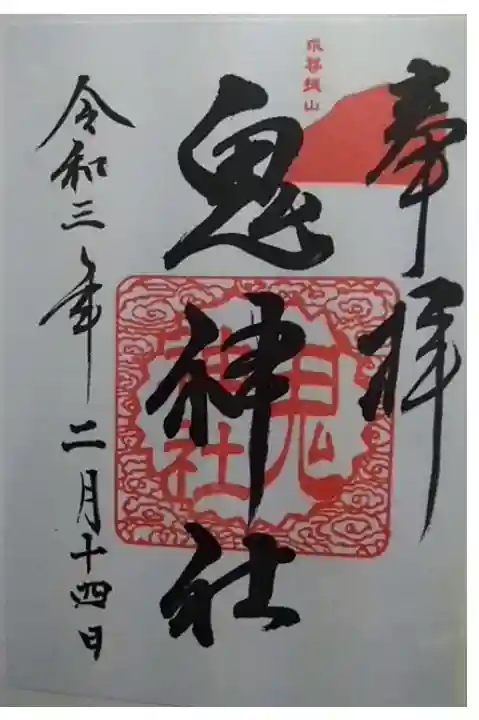 奉拝
求菩提山
鬼神社
鬼神社
令和三年二月十四日